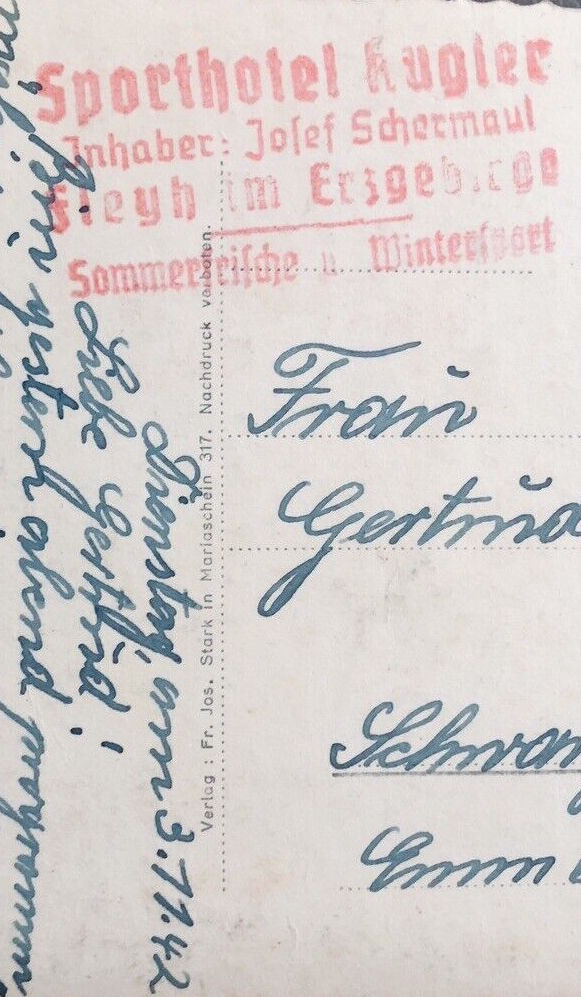 Sporthotel Kugler
Inhaber: Josef Schermaul
Fleyh im Erzgebirge
Sommerfrische u. Wintersport
Verlag: Fr. Jos. Stark in Mariaschein 317. Nachdruck verboten.
Dienstag, am 3.11.42
Liebe Gertrud!
Bin gestern abend
Frau
Gertrud
Schwar